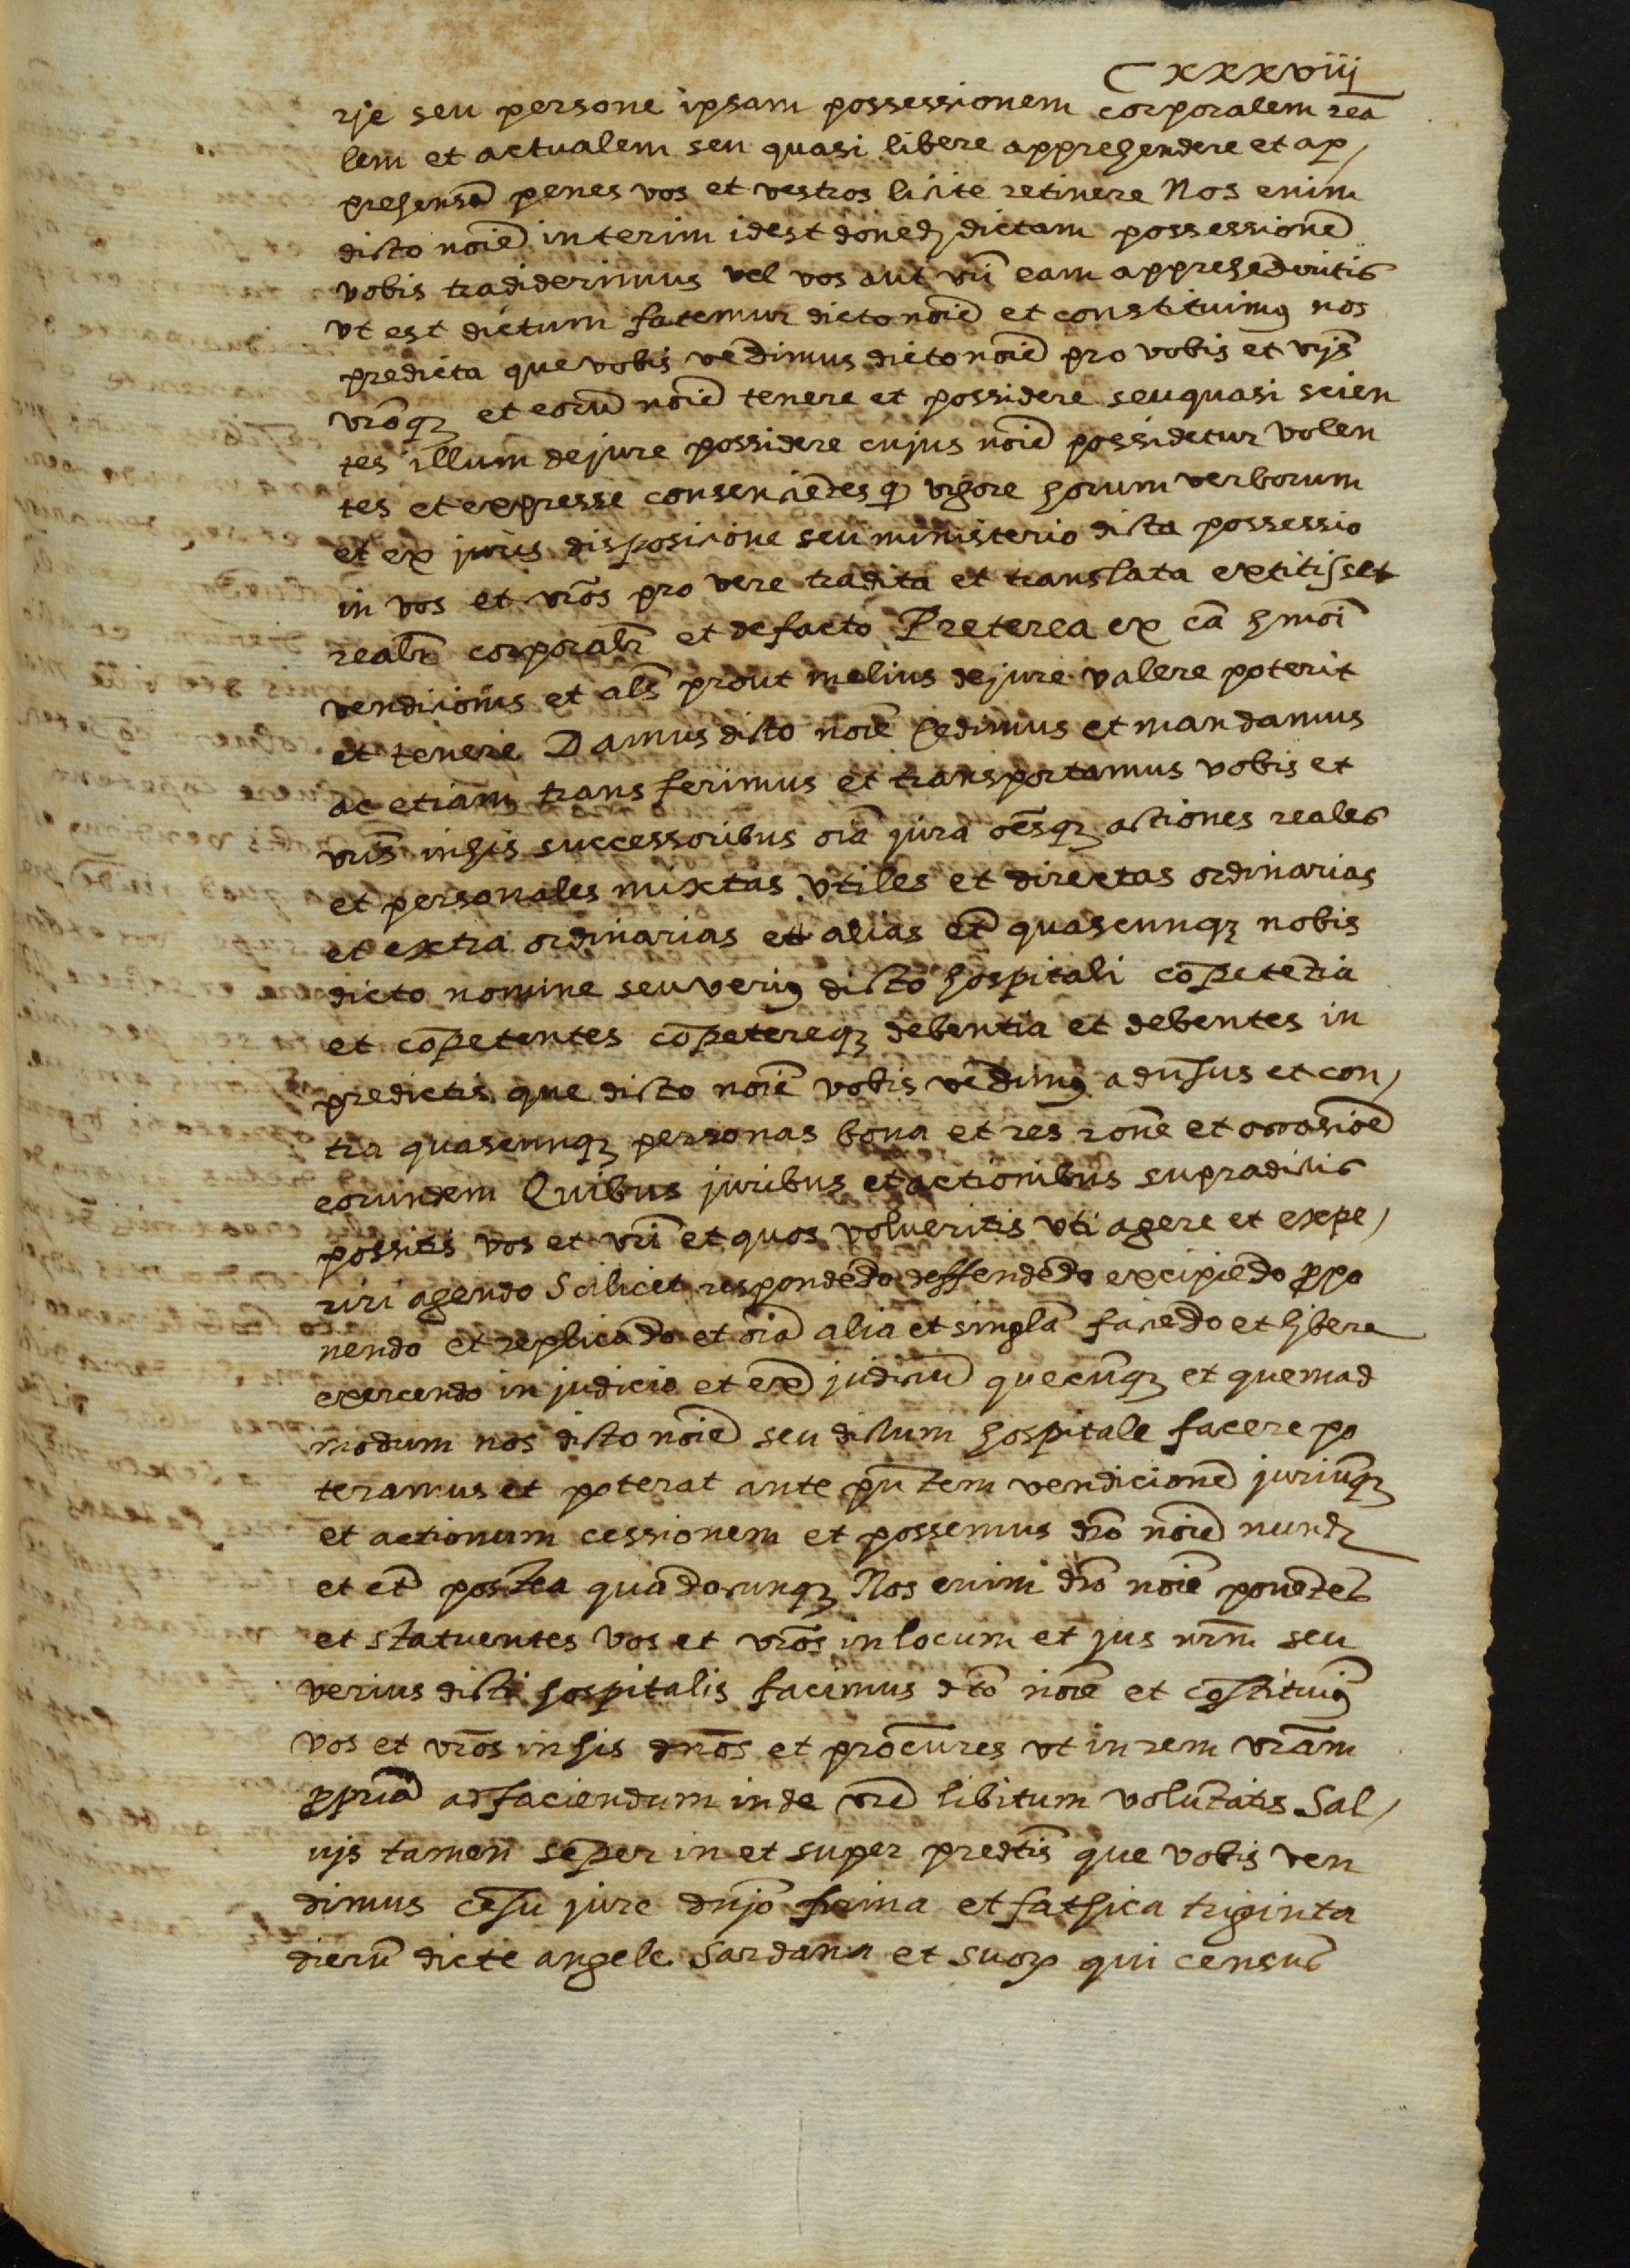 Cxxxviij
rje seu persone ipsam possessionem corporalem rea
lem et actualem seu quasi libere apprehendere et ap/
prehensã penes vos et vestros licite retinere Nos enim
dicto noiẽ interim idest doneqȝ dictam possessionẽ
vobis tradiderimus vel vos aut vrĩ eam apprehẽderitis
vt est dictum fatemur dicto noiẽ et constituimꝰ nos
predicta que vobis vẽdimus dicto noiẽ pro vobis et vrĩs
vrõqȝ et eorũ noiẽ tenere et possidere seuquasi scien
tes illum dejure possidere cujus noiẽ possidetur volen
tes et expresse consenciẽtes ꝙ vigore horum verborum
et ex juris disposicione seu ministerio dicta possessio
in vos et vrõs pro vere tradita et translata extitisset
realr̃ corporalr̃ et defacto Preterea ex cã hmõi
vendicionis et als̃ prout melius dejure valere poterit
et tenere Damus dicto noiẽ Cedimus et mandamus
ac etiam transferimus et transportamus vobis et
vrĩs inhis successoribus oĩa jura oẽsqȝ actiones reales
et personales mixtas vtiles et directas ordinarias
et extra ordinarias et alias et̃ quascunqȝ nobis
dicto nomine seu veriꝰ dicto hospitali cõpetẽtia
et cõpetentes cõpetereqȝ debentia et debentes in
predictis que dicto noiẽ vobis vẽdimꝰ aduĩsus et con/
tra quascunqȝ personas bona et res rõne et occasiõe
eorundem Quibus juribus et actionibus supradictis
possitis vos et vrĩ et quos volueritis vti agere et expe/
riri agendo Scilicet respondẽdo deffendẽdo excipiẽdo ꝓpo
nendo et replicãdo et oĩa alia et singlã faciẽdo et libere
exercendo in judicio et exã judiciũ quecũqȝ et quemad
modum nos dicto noiẽ seu dictum hospitale facere po
teramus et poterat ante pñtem vendicionẽ juriũqȝ
et actionum cessionem et possemus dtõ noiẽ nunqȝ
et et̃ postea quãdocunqȝ Nos enim dtõ noiẽ ponẽtes
et statuentes vos et vrõs in locum et jus nrm̃ seu
verius dicti hospitalis facimus dtõ noiẽ et cõstituimꝰ
vos et vrõs inhis dnõs et procũres vt in rem vrãm
ꝓpriã ad faciendum inde vrẽ libitum volũtatis Sal/
vjs tamen sẽper in et super predtĩs que vobis ven
dimus cẽsu jure dnjõ firma et fathica triginta
dierũ dicte angele Sardana et suoꝝ qui census